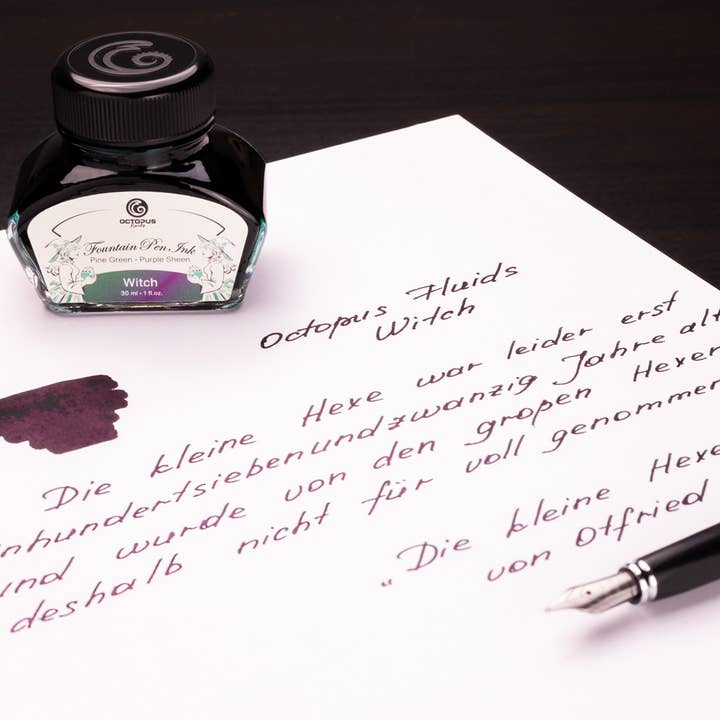 OCTOPUS
Fluids
Fountain Pen Ink
Pine Green - Purple Sheen
Witch
30 ml - 1 fl.oz.
Octopus Fluids
Witch
Die kleine Hexe war leider erst
inhundertsiebenundzwanzig Jahre alt
und wurde von den großen Hexen
deshalb nicht für voll genommen
„Die kleine Hexe
von Otfried